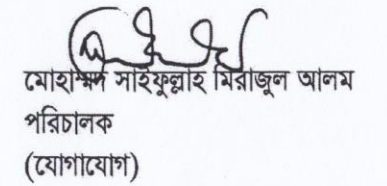 মোহাম্মদ সাইফুল্লাহ মিরাজুল আলম
পরিচালক
(যোগাযোগ)